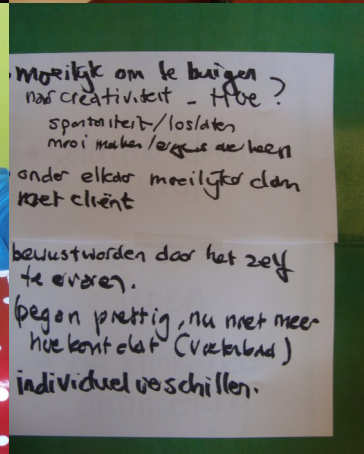 . moeilijk om te buigen
naar creativiteit - Hoe?
spontaniteit/loslaten
mooi maken / heen
onder elkaar moeilijker dan
met cliënt
bewustworden door het zelf
te ervaren.
Begon prettig, nu niet meer
hoe komt dat ( )
individueel verschillen.